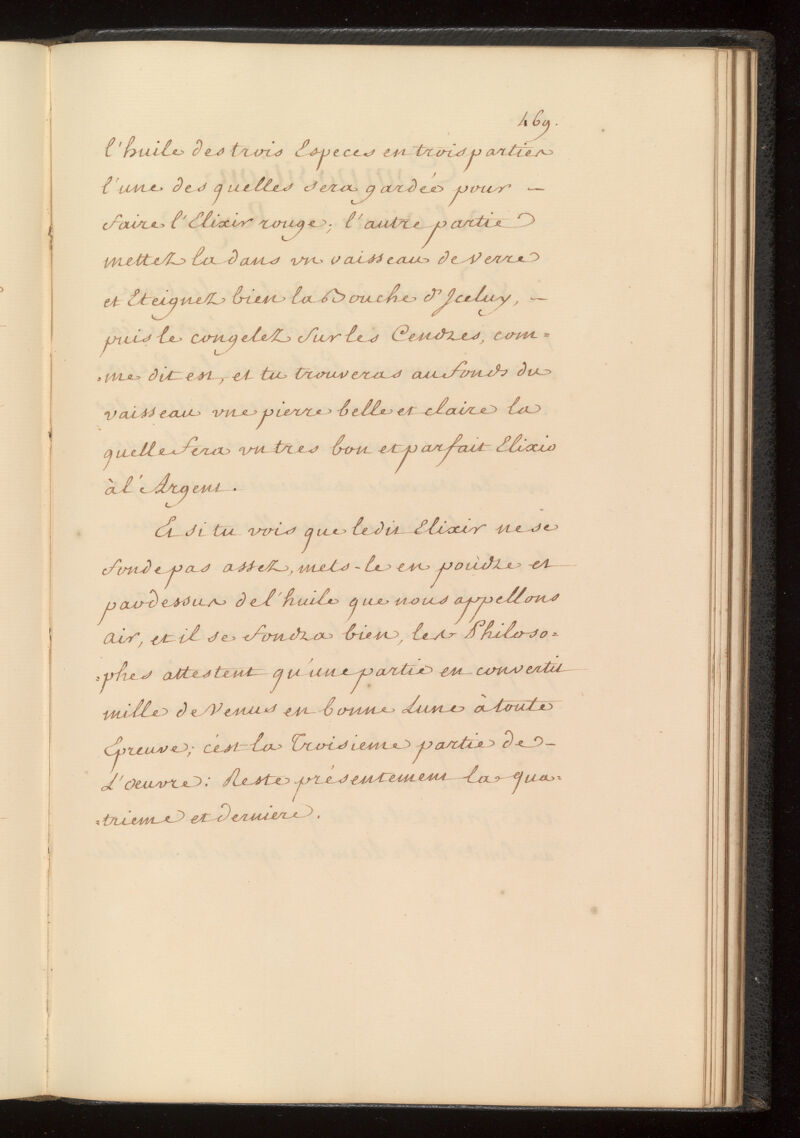 469.
l'huile des trois Especes en trois parties
l'une des quelles sera gardée pour –
faire l'Elixir rouge; l'autre partie
mettez la dans vn vaisseau de verre
et Eteignez bien la Bouche d'Jceluy, –
puis le congelez sur les Cendres, com=
=me dit est, et tu trouveras au fonds du
vaisseau vne pierre belle et claire la
quelle sera vn tres bon et parfait Elixir
à l'Argent.
Et si tu vois que ledit Elixir ne se
fonde pas assez, mets-le en poudre et
par dessus de l'huile que nous appellons
air, et il se fondra bien, les Philoso=
=phes attestent qu'une partie en convertit
mille de Venus en bonne Lune à toute
Epreuve; c'est la Troisieme partie de –
L'oeuvre: Reste présentement la qua=
=trieme et derniere.